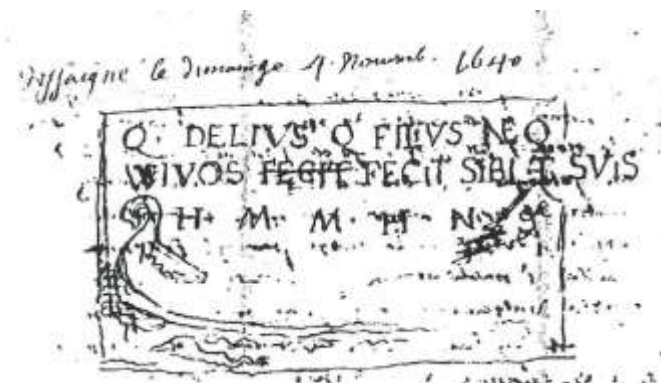 le dimange 4 Novemb. 1640
Q DELIVS Q FILIVS NEQ
VIVOS FEGIT FECIT SIBI ET SVIS
H M M H N